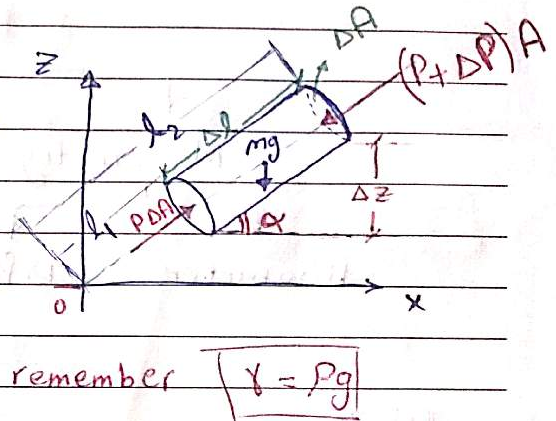 ΔA
(P+ΔP)A
Z
l₂
Δl
mg
ΔZ
l₁
PΔA
α
0
x
remember γ = ρg